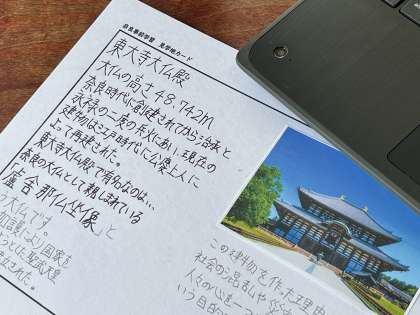 奈良事前学習 見学地カード
東大寺大仏殿
大仏の高さ48.742m
奈良時代に創建されてから治承と
永禄の二度の兵火にあい現在の
建物は江戸時代に公慶上人に
よって再建された。
東大寺大仏殿で有名なのは…
奈良の大仏として親しまれている
盧舎那仏坐像」と
大仏です。
により国家を
聖武天皇
この建物を作った理由
社会の混乱や
人々の心を一つ
いう目